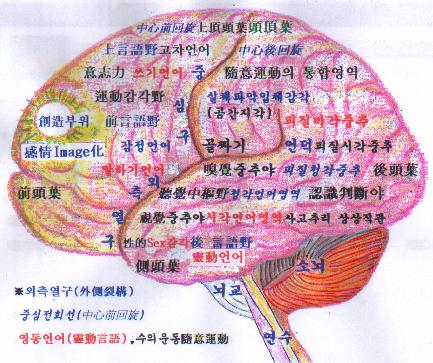 中心前回旋上頂頭葉頭頂葉
上言語野고차언어 中心後回旋
意志力 쓰기언어 중 隨意運動의 통합영역
運動감각野 심 실체파악입체감각
創造부위 前言語野 구 (공간지각) 피질미각중추
感情Image化 감정언어 골짜기 언덕피질시각중추
말하기언어 외 嗅覺중추야 피질청각중추 後頭葉
前頭葉 측 聽覺中樞野청각언어영역 認識判斷야
열 視覺중추야시각언어영역사고추리 상상직관
구 性的Sex감각後 言語野
側頭葉 靈動언어 소뇌
※외측열구(外側裂構) 뇌교
중심전회선(中心前回旋)
영동언어(靈動言語).수의운동隨意運動 연수